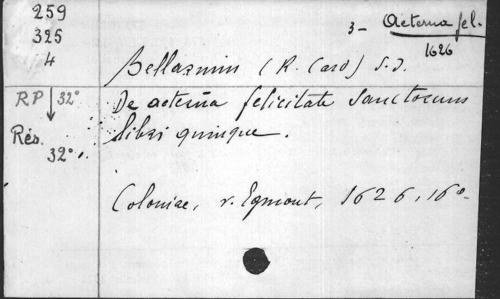 259
325
4
3- Aeterna fel.
1626
Bellarmin (R. Card) S.J.
RP 32°
De aeterna felicitate sanctorum
Rés.
libri quinque.
32°
Coloniae, v. Egmont, 1626, 16°.